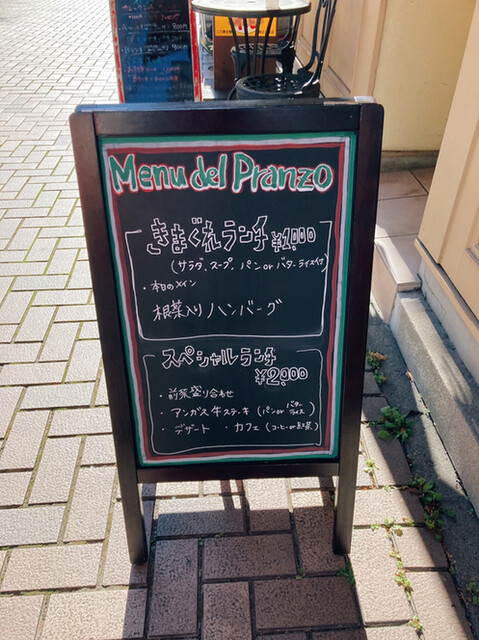 Menu del Pranzo
きまぐれランチ ¥1,000
(サラダ、スープ、パン or バターライス付)
・本日のメイン
根菜入りハンバーグ
スペシャルランチ
¥2,000
・前菜盛り合わせ
・アンガス牛ステーキ (パン or バターライス)
・デザート ・カフェ (コーヒー or 紅茶)